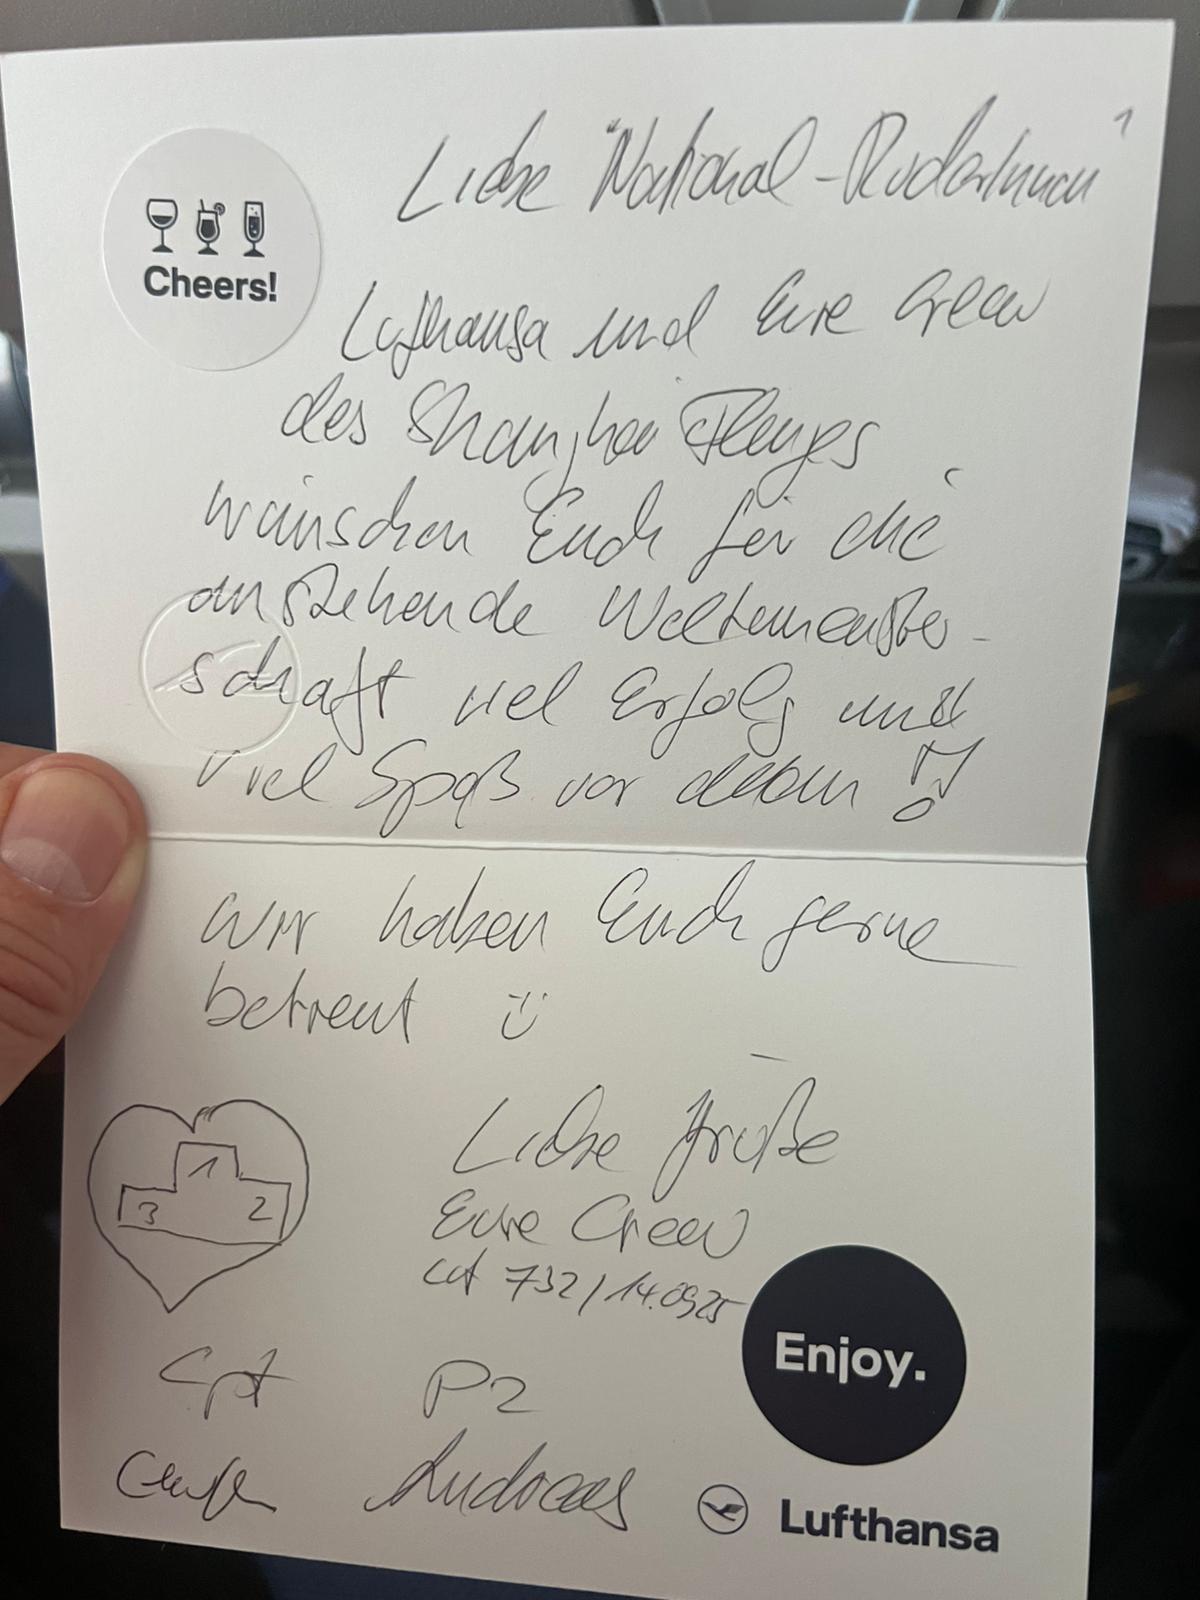 Cheers!
Liebe "National-Ruderinnen"
Lufthansa und Eure Crew
des Shanghai Fluges
wünschen Euch für die
anstehende Weltmeister-
schaft viel Erfolg und
viel Spaß vor allem!
Wir haben Euch gerne
betreut :)
1
3 2
Liebe Grüße
Eure Crew
732/14.09.25
Cpt P2
Andreas
Enjoy.
Lufthansa